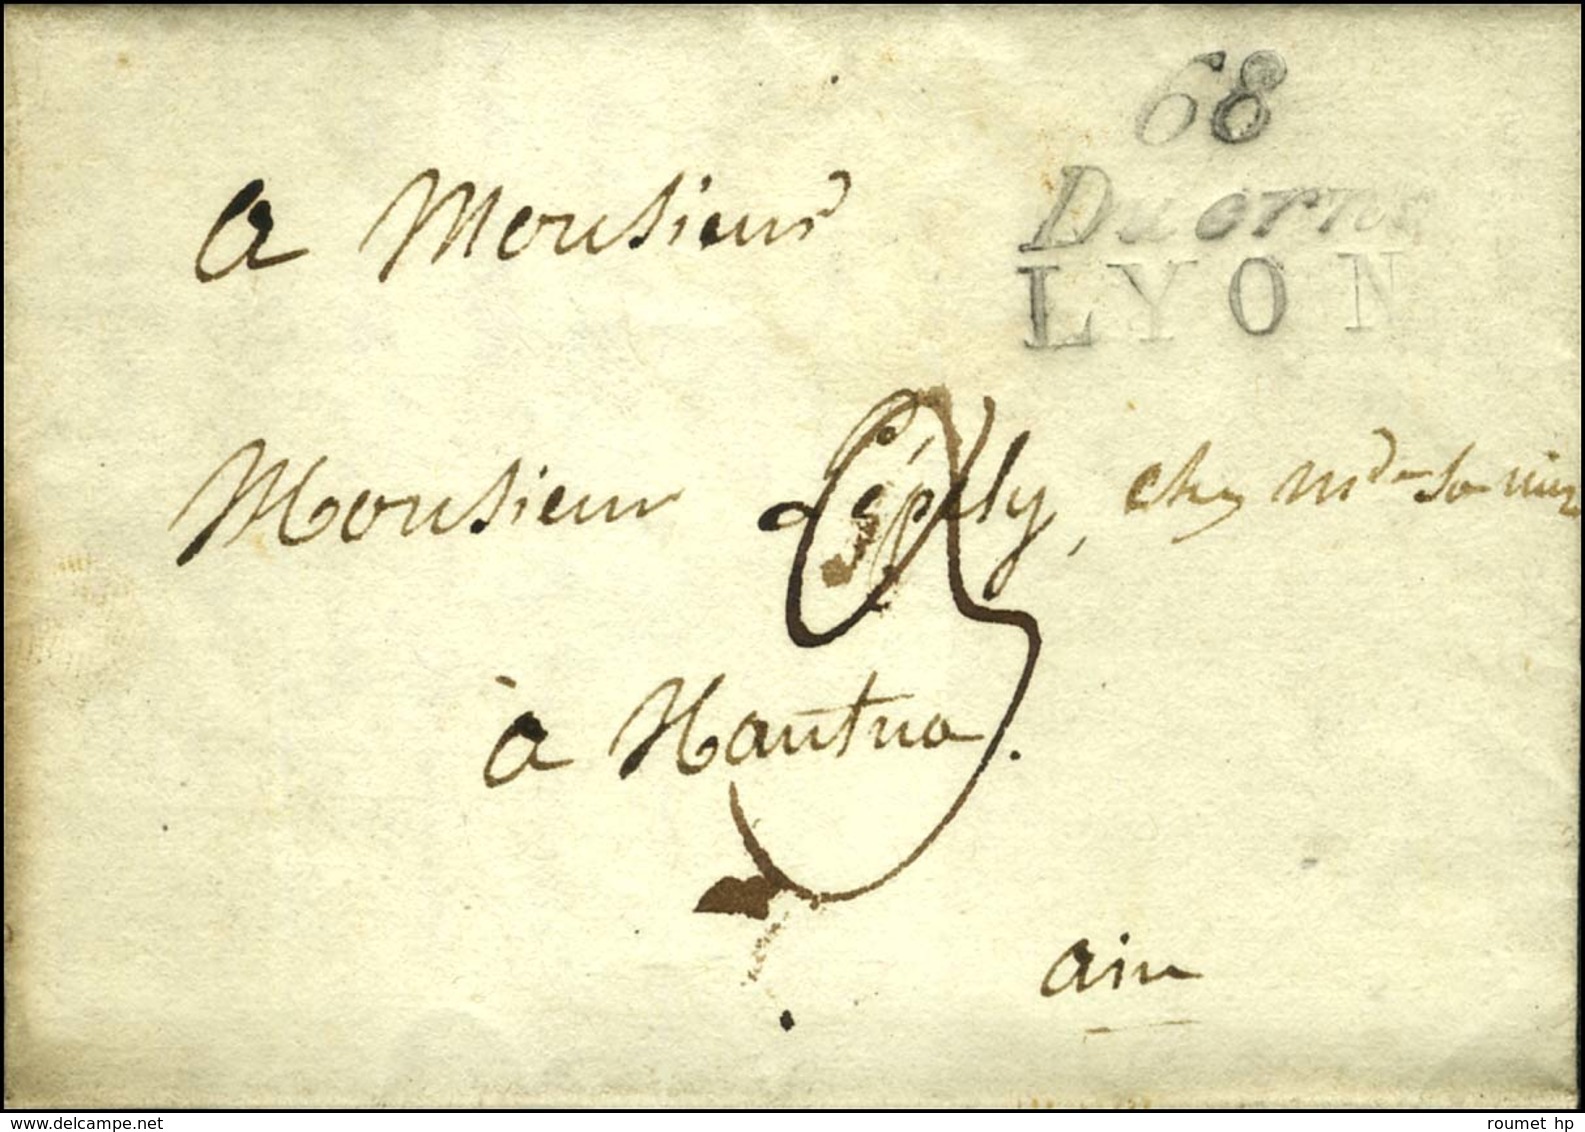 68
Duerne
LYON
a Monsieur
Monsieur Lépely, chez md
à Nantua.
3
ain
delcampe.net
roumet hp